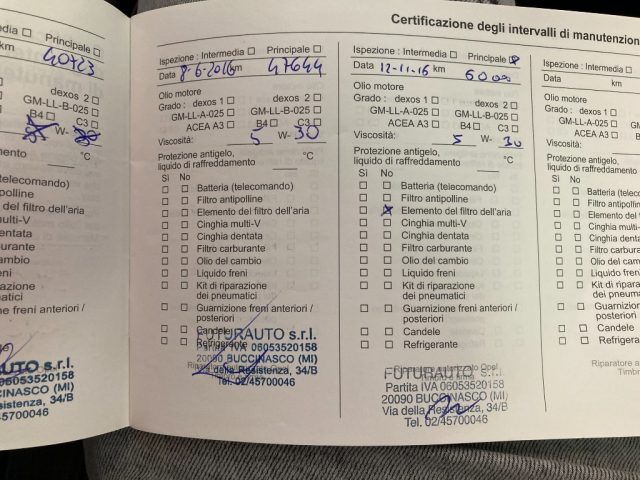 40723
km
dexos 2 □
GM-LL-B-025 □
B4 □ C3
W-
°C
elemento del filtro dell'aria
FUTURAUTO s.r.l.
06053520158
BUCCINASCO (MI)
Resistenza, 34/B
02/45700046
Ispezione : Intermedia □ Principale □
Data 8-6-2016 km 47644
Olio motore
Grado : dexos 1 □ dexos 2 □
GM-LL-A-025 □ GM-LL-B-025 □
ACEA A3 □ B4 □ C3 □
Viscosità: 5 W- 30
Protezione antigelo,
liquido di raffreddamento °C
Sì No
□ □ Batteria (telecomando)
□ □ Filtro antipolline
□ □ Elemento del filtro dell'aria
□ □ Cinghia multi-V
□ □ Cinghia dentata
□ □ Filtro carburante
□ □ Olio del cambio
□ □ Liquido freni
□ □ Kit di riparazione
dei pneumatici
□ □ Guarnizione freni anteriori /
posteriori
□ □ Candele
□ □ Refrigerante
FUTURAUTO s.r.l.
Partita IVA 06053520158
20090 BUCCINASCO (MI)
Via della Resistenza, 34/B
Tel. 02/45700046
Certificazione degli intervalli di
Ispezione : Intermedia □ Principale
Data 12-11-16 km 60000
Olio motore
Grado : dexos 1 □ dexos 2 □
GM-LL-A-025 □ GM-LL-B-025 □
ACEA A3 □ B4 □ C3 □
Viscosità: 5 W- 30
Protezione antigelo,
liquido di raffreddamento °C
Sì No
□ □ Batteria (telecomando)
□ □ Filtro antipolline
□ ☒ Elemento del filtro dell'aria
□ □ Cinghia multi-V
□ □ Cinghia dentata
□ □ Filtro carburante
□ □ Olio del cambio
□ □ Liquido freni
□ □ Kit di riparazione
dei pneumatici
□ □ Guarnizione freni anteriori /
posteriori
□ □ Candele
□ □ Refrigerante
Riparatore autorizzato Opel
FUTURAUTO s.r.l.
Partita IVA 06053520158
20090 BUCCINASCO (MI)
Via della Resistenza, 34/B
Tel. 02/45700046
Ispezione : Intermedia
Data km
Olio motore
Grado : dexos 1 □
GM-LL-A-025 □
ACEA A3 □
Viscosità:
Protezione antigelo,
liquido di raffreddamento
Sì No
□ □ Batteria
□ □ Filtro
□ □ Elemento
□ □ Cinghia
□ □ Cinghia
□ □ Filtro
□ □ Olio del
□ □ Liquido
□ □ Kit di
dei
□ □ Guarnizione
posteriori
□ □ Candele
□ □ Refrigerante
Riparatore